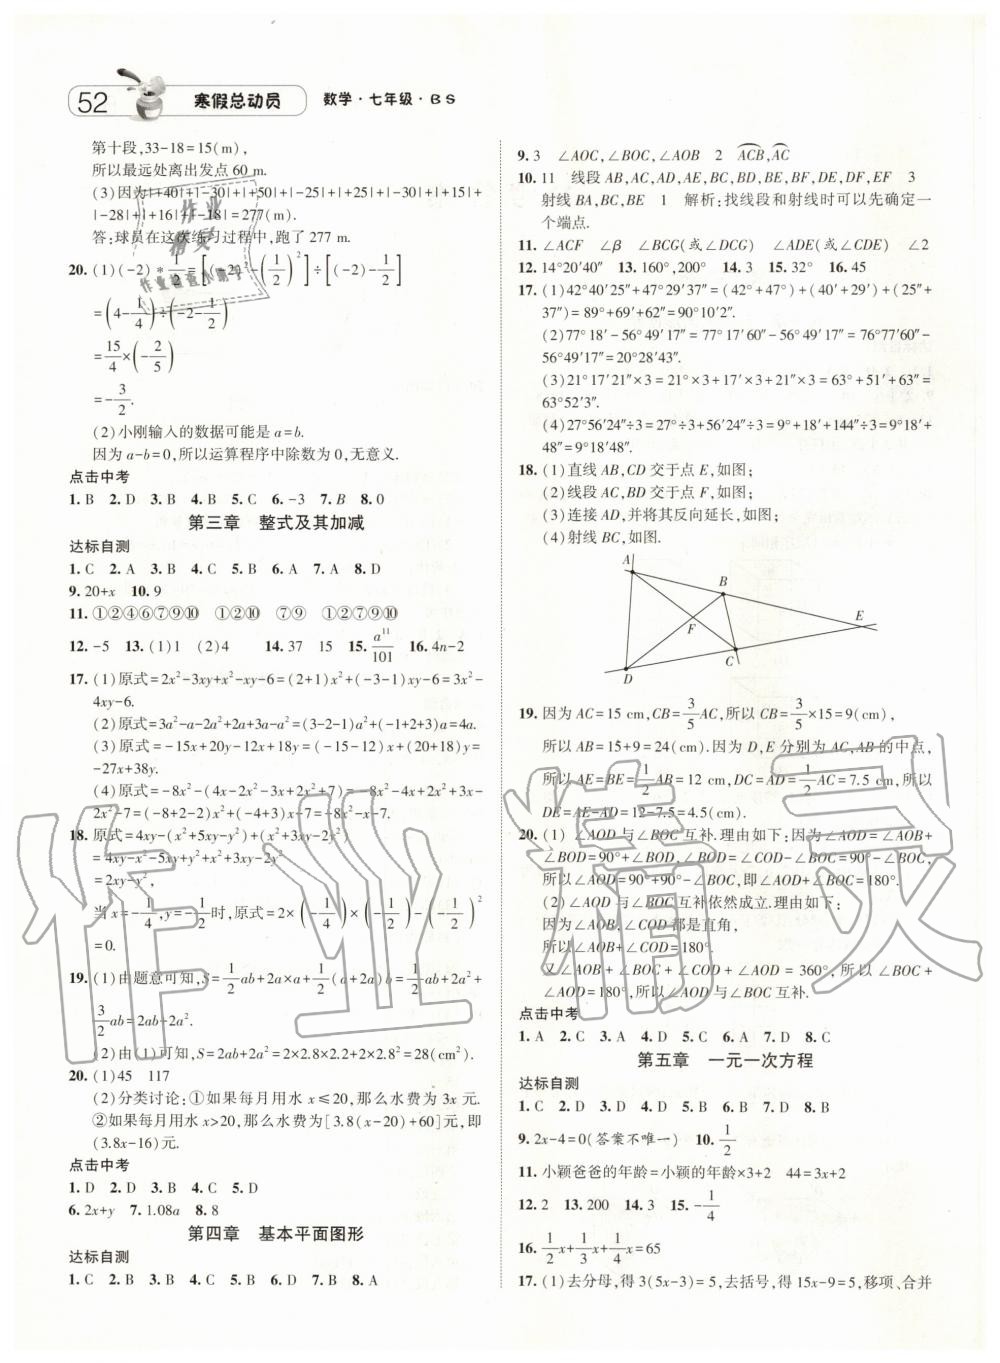 52
寒假总动员
数学·七年级·BS
第十段,33-18=15(m),
所以最远处离出发点 60 m.
(3)因为|+40|+|-30|+|+50|+|-25|+|+25|+|-30|+|+15|+
|-28|+|+16|+|-18|=277(m).
答:球员在这次练习过程中,跑了 277 m.
20. (1)(-2)*1/2=[(-2)²-(1/2)²]÷[(-2)-1/2]
=(4-1/4)÷(-2-1/2)
=15/4×(-2/5)
=-3/2.
(2)小刚输入的数据可能是 a=b.
因为 a-b=0,所以运算程序中除数为 0,无意义.
点击中考
1. B 2. D 3. B 4. B 5. C 6. -3 7. B 8. 0
第三章 整式及其加减
达标自测
1. C 2. A 3. B 4. C 5. B 6. A 7. A 8. D
9. 20+x 10. 9
11. ①②④⑥⑦⑨⑩ ①②⑩ ⑦⑨ ①②④⑥⑦⑨⑩
12. -5 13. (1)1 (2)4 14. 37 15 15. a¹¹/101 16. 4n-2
17. (1)原式=2x²-3xy+x²-xy-6=(2+1)x²+(-3-1)xy-6=3x²-
4xy-6.
(2)原式=3a²-a-2a²+2a+3a-a²=(3-2-1)a²+(-1+2+3)a=4a.
(3)原式=-15x+20y-12x+18y=(-15-12)x+(20+18)y=
-27x+38y.
(4)原式=-8x²-(4x-2x²-3x+2x²+7)=-8x²-4x+2x²+3x-
2x²-7=(-8+2-2)x²+(-4+3)x-7=-8x²-x-7.
18. 原式=4xy-(x²+5xy-y²)+(x²+3xy-2y²)
=4xy-x²-5xy+y²+x²+3xy-2y²
=2xy-y²,
当 x=-1/4,y=-1/2时,原式=2×(-1/4)×(-1/2)-(-1/2)²
=0.
19. (1)由题意可知,S=1/2ab+2a×a+1/2(a+2a)b=1/2ab+2a²+
3/2ab=2ab+2a².
(2)由(1)可知,S=2ab+2a²=2×2.8×2.2+2×2.8²=28(cm²).
20. (1)45 117
(2)分类讨论:①如果每月用水 x≤20,那么水费为 3x 元.
②如果每月用水 x>20,那么水费为[3.8(x-20)+60]元,即
(3.8x-16)元.
点击中考
1. D 2. D 3. B 4. C 5. D
6. 2x+y 7. 1.08a 8. 8
第四章 基本平面图形
达标自测
1. C 2. B 3. C 4. B 5. C 6. B 7. B 8. A
9. 3 ∠AOC,∠BOC,∠AOB 2 ACB,AC
10. 11 线段 AB,AC,AD,AE,BC,BD,BE,BF,DE,DF,EF 3
射线 BA,BC,BE 1 解析:找线段和射线时可以先确定一
个端点.
11. ∠ACF ∠β ∠BCG(或∠DCG) ∠ADE(或∠CDE) ∠2
12. 14°20′40″ 13. 160°,200° 14. 3 15. 32° 16. 45
17. (1)42°40′25″+47°29′37″=(42°+47°)+(40′+29′)+(25″+
37″)=89°+69′+62″=90°10′2″.
(2)77°18′-56°49′17″=77°17′60″-56°49′17″=76°77′60″-
56°49′17″=20°28′43″.
(3)21°17′21″×3=21°×3+17′×3+21″×3=63°+51′+63″=
63°52′3″.
(4)27°56′24″÷3=27°÷3+56′24″÷3=9°+18′+144″÷3=9°18′+
48″=9°18′48″.
18. (1)直线 AB,CD 交于点 E,如图;
(2)线段 AC,BD 交于点 F,如图;
(3)连接 AD,并将其反向延长,如图;
(4)射线 BC,如图.
A
B
E
F
C
D
19. 因为 AC=15 cm,CB=3/5AC,所以 CB=3/5×15=9(cm),
所以 AB=15+9=24(cm).因为 D,E 分别为 AC,AB 的中点,
所以 AE=BE=1/2AB=12 cm,DC=AD=1/2AC=7.5 cm,所以
DE=AE-AD=12-7.5=4.5(cm).
20. (1) ∠AOD 与∠BOC 互补.理由如下:因为∠AOD=∠AOB+
∠BOD=90°+∠BOD,∠BOC=∠COD-∠BOD=90°-∠BOD,
所以∠AOD=90°+90°-∠BOC,即∠AOD+∠BOC=180°.
(2)∠AOD 与∠BOC 互补依然成立.理由如下:
因为∠AOB,∠COD 都是直角,
所以∠AOB+∠COD=180°.
又∠AOB+∠BOC+∠COD+∠AOD=360°,所以∠BOC+
∠AOD=180°,所以∠AOD 与∠BOC 互补.
点击中考
1. A 2. C 3. A 4. D 5. C 6. A 7. D 8. C
第五章 一元一次方程
达标自测
1. C 2. D 3. A 4. D 5. B 6. C 7. D 8. B
9. 2x-4=0(答案不唯一) 10. 1/2
11. 小颖爸爸的年龄=小颖的年龄×3+2 44=3x+2
12. 2 13. 200 14. 3 15. -1/4
16. 1/2x+1/3x+1/4x=65
17. (1)去分母,得 3(5x-3)=5,去括号,得 15x-9=5,移项、合并
作业精灵